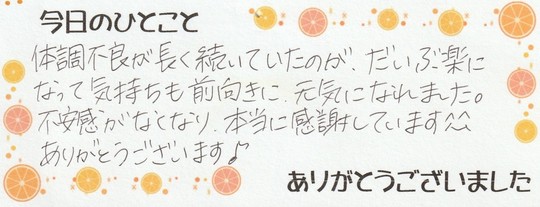 今日のひとこと
体調不良が長く続いていたのが、だいぶ楽に
なって気持ちも前向きに、元気になれました。
不安感がなくなり、本当に感謝しています^^
ありがとうございます♪
ありがとうございました